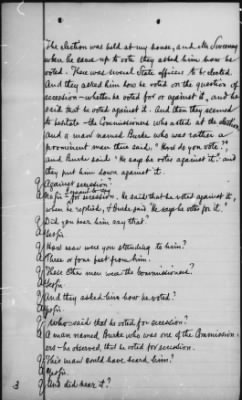 The election was held at my house, and Mr Sweeney
when he came up to vote they asked him how he
voted. There was several State officers to be elected.
And they asked him how he voted on the question of
secession - whether he voted for or against it, and he
said that he voted against it. And then they seemed
to hesitate - the Commissioners who acted at the election
and a man named Burke who was rather a
prominent man there said: "How do you vote?"
and Burke said: "He says he votes against it": and
they put him down against it.
Q Against secession?
A No sir - for secession. He said that he voted against it,
when he replied, & Burke said "He says he votes for it."
Q Did you hear him say that?
A Yes sir.
Q How near were you standing to him?
A Three or four feet from him.
Q These other men were the Commissioners?
A Yes sir.
Q And they asked him how he voted?
A Yes sir.
Q Who said that he voted for secession?
A A man named Burke who was one of the Commission-
ers - he observed, that he voted for secession.
Q This man could have heard him?
A Yes sir.
Q And did hear it?
3